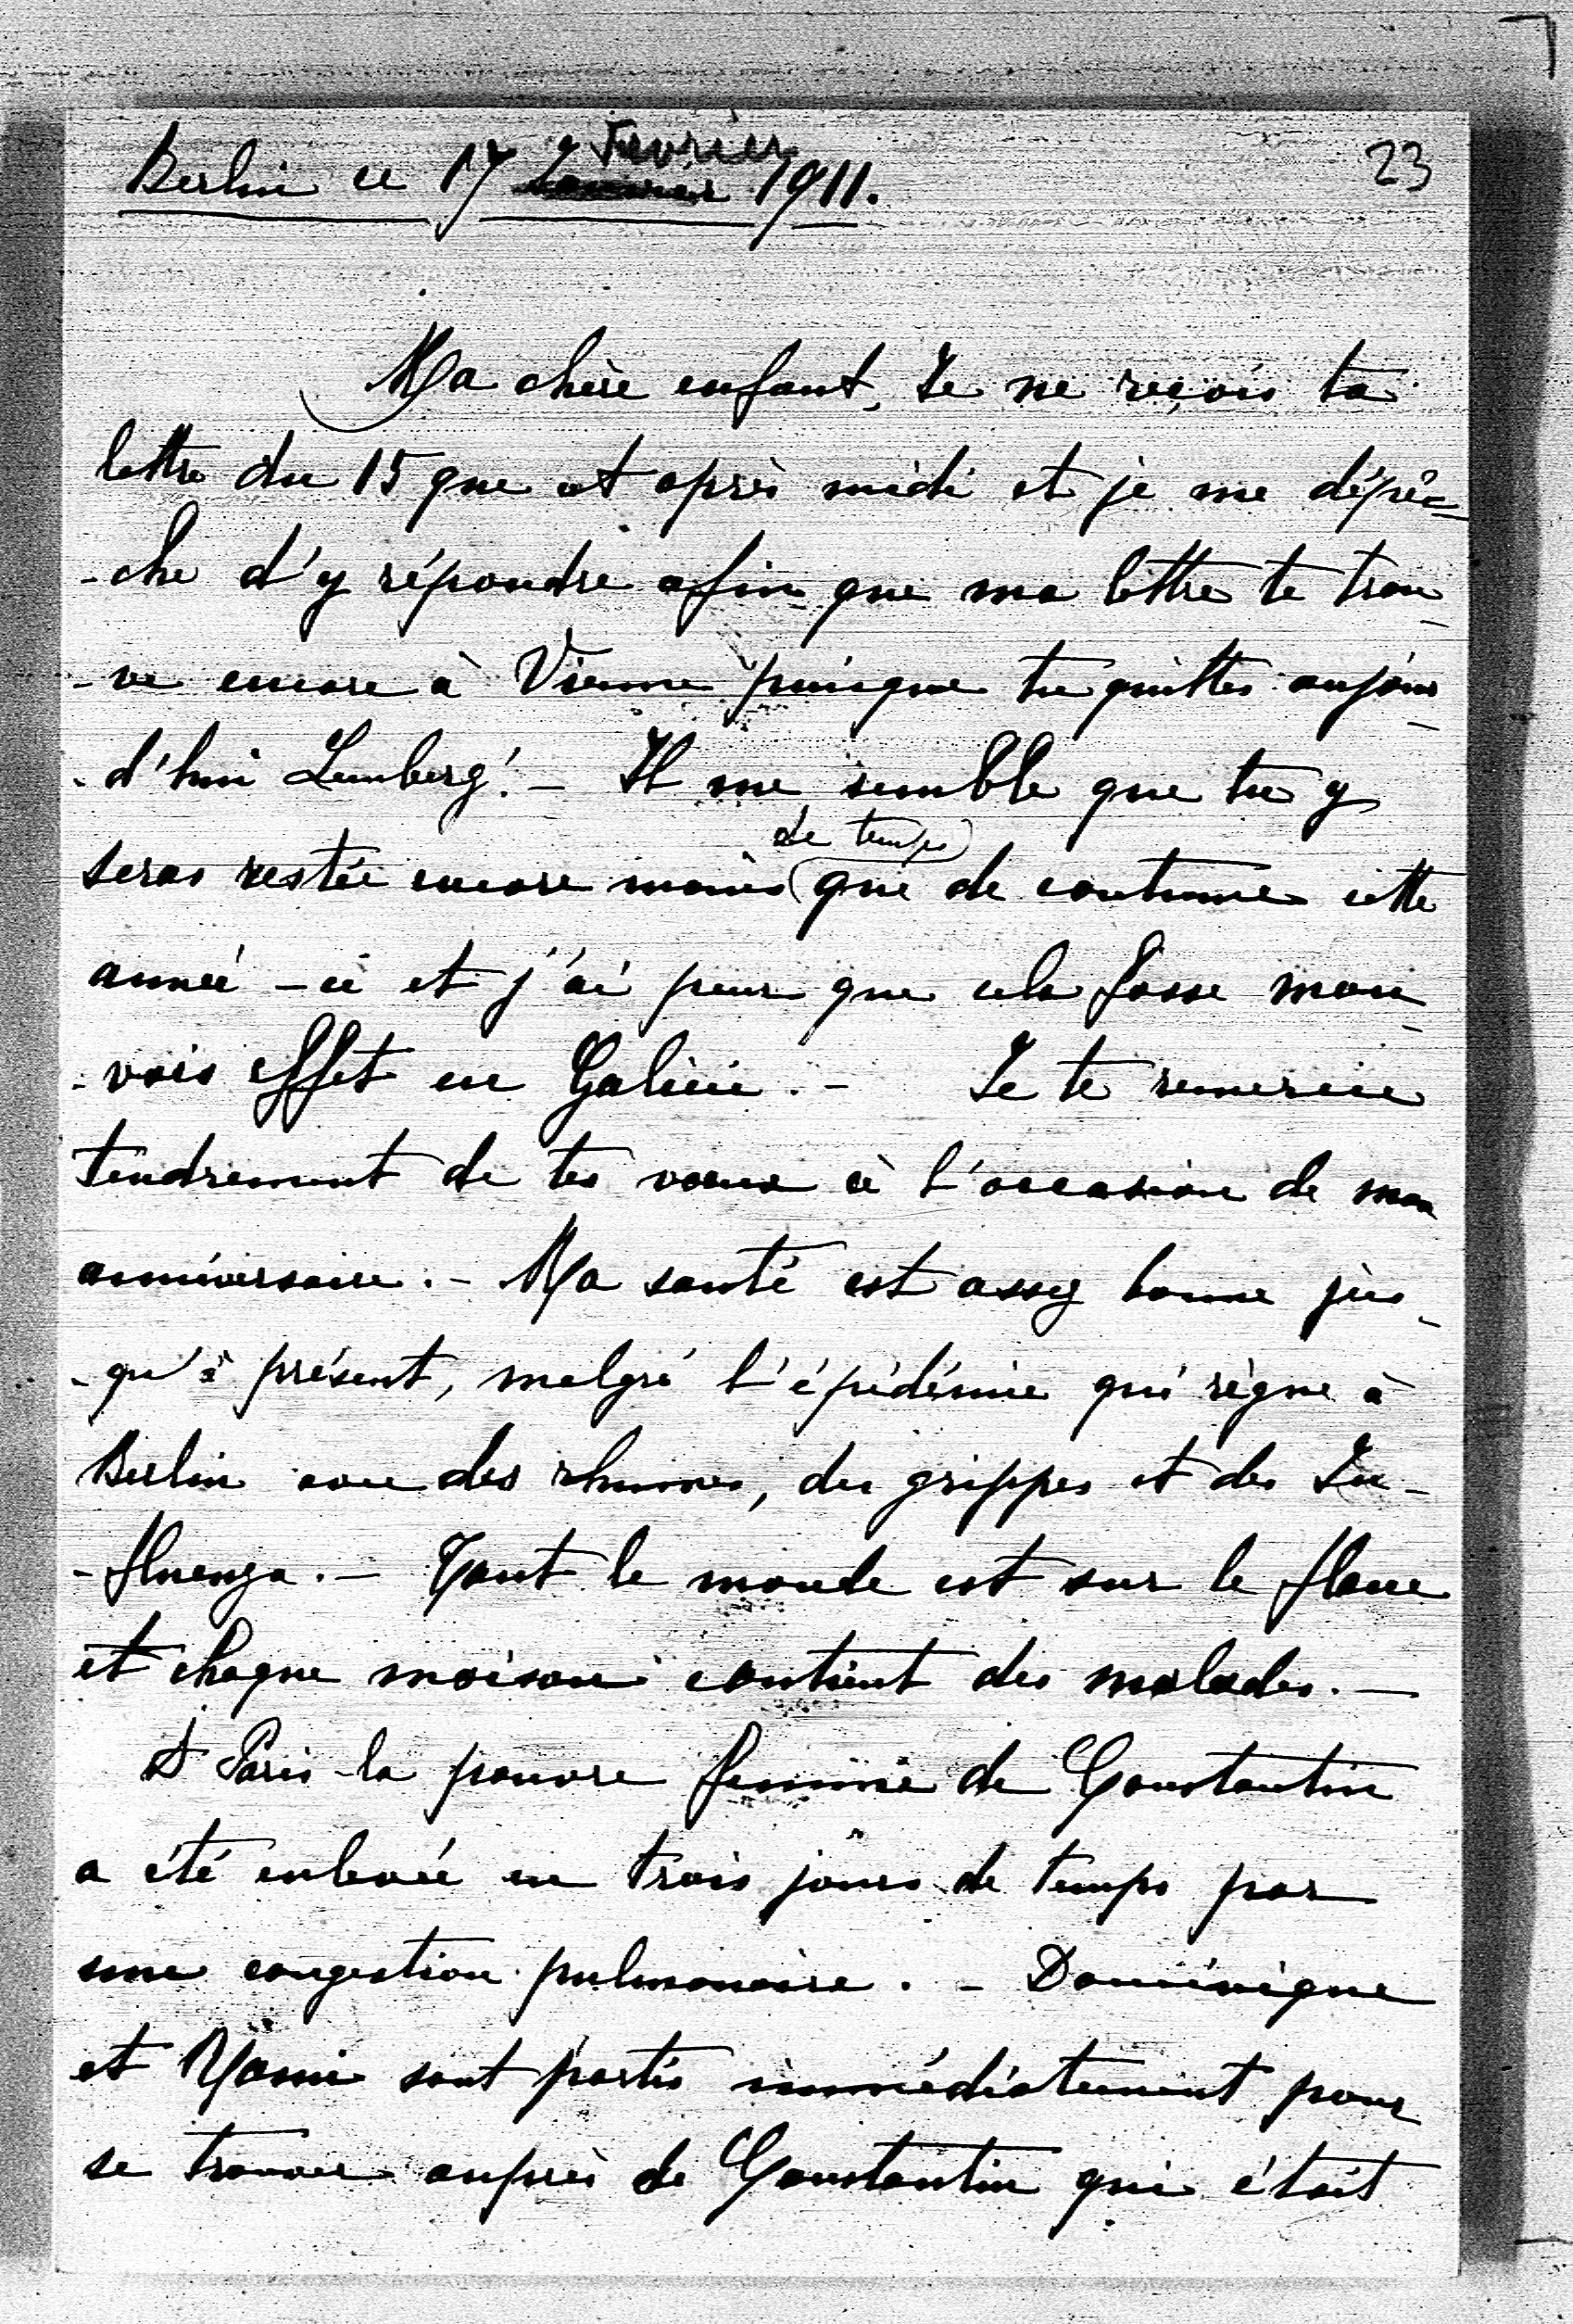 23
Berlin ce 17 Janvier Fevrier 1911.
Ma chère enfant, Je ne reçois ta
lettre du 15 que cet après midi et je me dépêc=
-che d'y répondre afin que ma lettre te trou-
-ve encore à Vienne puisque tu quittes aujour-
-d'hui Lemberg! - Il me semble que tu y
seras restée encore moins (de temps) que de coutume cette
année-ci et j'ai peur que cela fasse mau-
-vais effet en Galicie. - Je te remercie
tendrement de tes voeux à l'occasion de mon
anniversaire. - Ma santé est assez bonne jus-
-qu'à présent, malgré l'épidémie qui règne à
Berlin avec des rhumes, des grippes et des In-
-fluenza. - Tout le monde est sur le flanc
et chaque maison contient des malades. -
A Paris la pauvre femme de Constantin
a été enlevée en trois jours de temps par
une congestion pulmonaire. - Dominique
et sont partis immédiatement pour
se trouver auprès de Constantin qui était